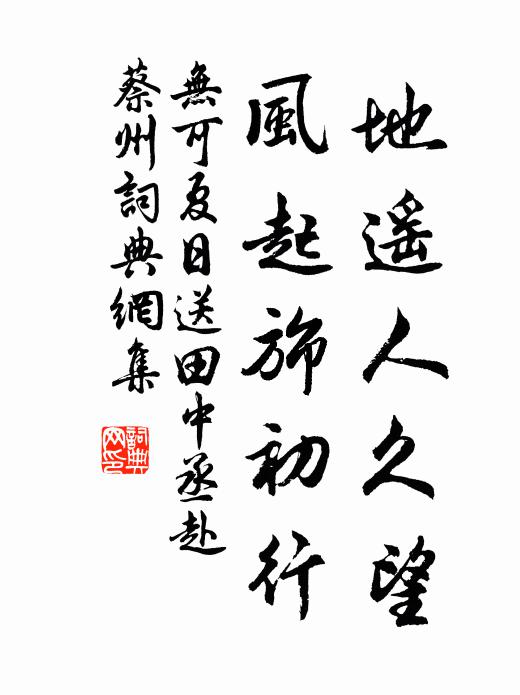 地遥人久望
風起旆初行
無可夏日送田中丞赴
蔡州詞典網集
詞典
网印